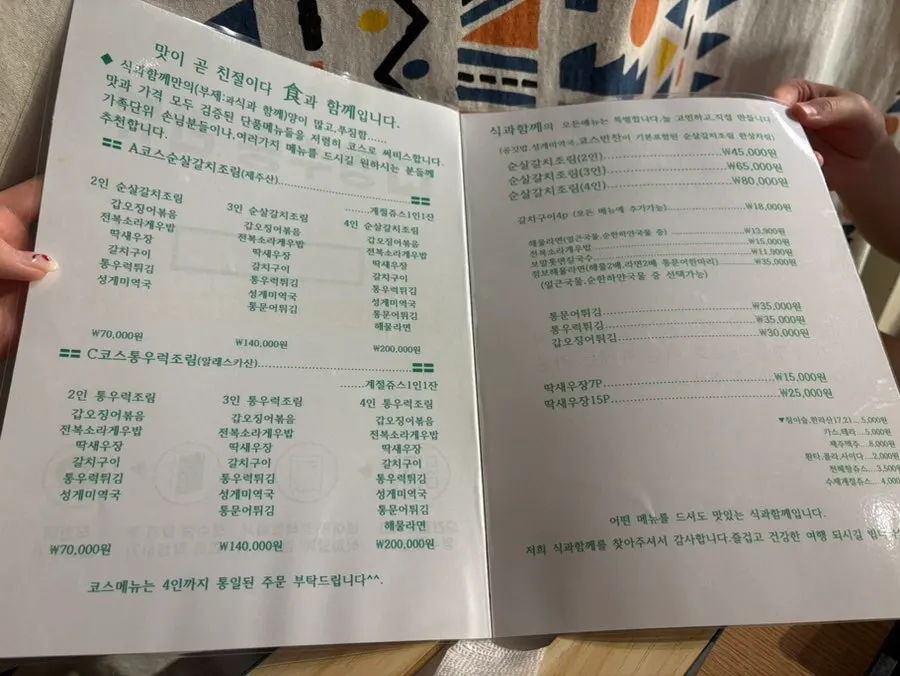 맛이 곧 친절이다 食과 함께입니다.
◆ 식과함께만의(부제:과식과 함께)양이 많고,푸짐함.....
맛과 가격 모두 검증된 단품메뉴들을 저렴히 코스로 써비스합니다.
가족단위 손님분들이나,여러가지 메뉴를 드시길 원하시는 분들께
추천합니다.
A코스순살갈치조림(제주산)
계절쥬스1인1잔
2인 순살갈치조림
갑오징어볶음
전복소라게우밥
딱새우장
갈치구이
통우럭튀김
성게미역국
₩70,000원
3인 순살갈치조림
갑오징어볶음
전복소라게우밥
딱새우장
갈치구이
통우럭튀김
성게미역국
통문어튀김
₩140,000원
4인 순살갈치조림
갑오징어볶음
전복소라게우밥
딱새우장
갈치구이
통우럭튀김
성게미역국
통문어튀김
해물라면
₩200,000원
C코스통우럭조림(알래스카산)
계절쥬스1인1잔
2인 통우럭조림
갑오징어볶음
전복소라게우밥
딱새우장
갈치구이
통우럭튀김
성게미역국
₩70,000원
3인 통우럭조림
갑오징어볶음
전복소라게우밥
딱새우장
갈치구이
통우럭튀김
성게미역국
통문어튀김
₩140,000원
4인 통우럭조림
갑오징어볶음
전복소라게우밥
딱새우장
갈치구이
통우럭튀김
성게미역국
통문어튀김
해물라면
₩200,000원
코스메뉴는 4인까지 통일된 주문 부탁드립니다^^.
식과함께의 모든메뉴는 특별합니다.늘 고민하고,직접 만듭니다
(곰깃밥,성게미역국,코스반찬이 기본포함된 순살갈치조림 한상차림)
순살갈치조림(2인) ₩45,000원
순살갈치조림(3인) ₩65,000원
순살갈치조림(4인) ₩80,000원
갈치구이4p (모든 메뉴에 추가가능) ₩18,000원
해물라면(얼큰국물,순한하얀국물 중) ₩13,900원
전복소라게우밥 ₩15,000원
보말톳면칼국수 ₩11,900원
점보해물라면(해물2배,라면2배 통문어한마리) ₩35,000원
(얼큰국물,순한하얀국물 중 선택가능)
통문어튀김 ₩35,000원
통우럭튀김 ₩35,000원
갑오징어튀김 ₩30,000원
딱새우장7P ₩15,000원
딱새우장15P ₩25,000원
▼참이슬,한라산17,21...5,000원
카스,테라...5,000원
제주맥주...8,000원
환타,콜라,사이다...2,000원
천혜향쥬스...3,500원
수제계절쥬스...4,000
어떤 메뉴를 드셔도 맛있는 식과함께입니다.
저희 식과함께를 찾아주셔서 감사합니다.즐겁고 건강한 여행 되시길